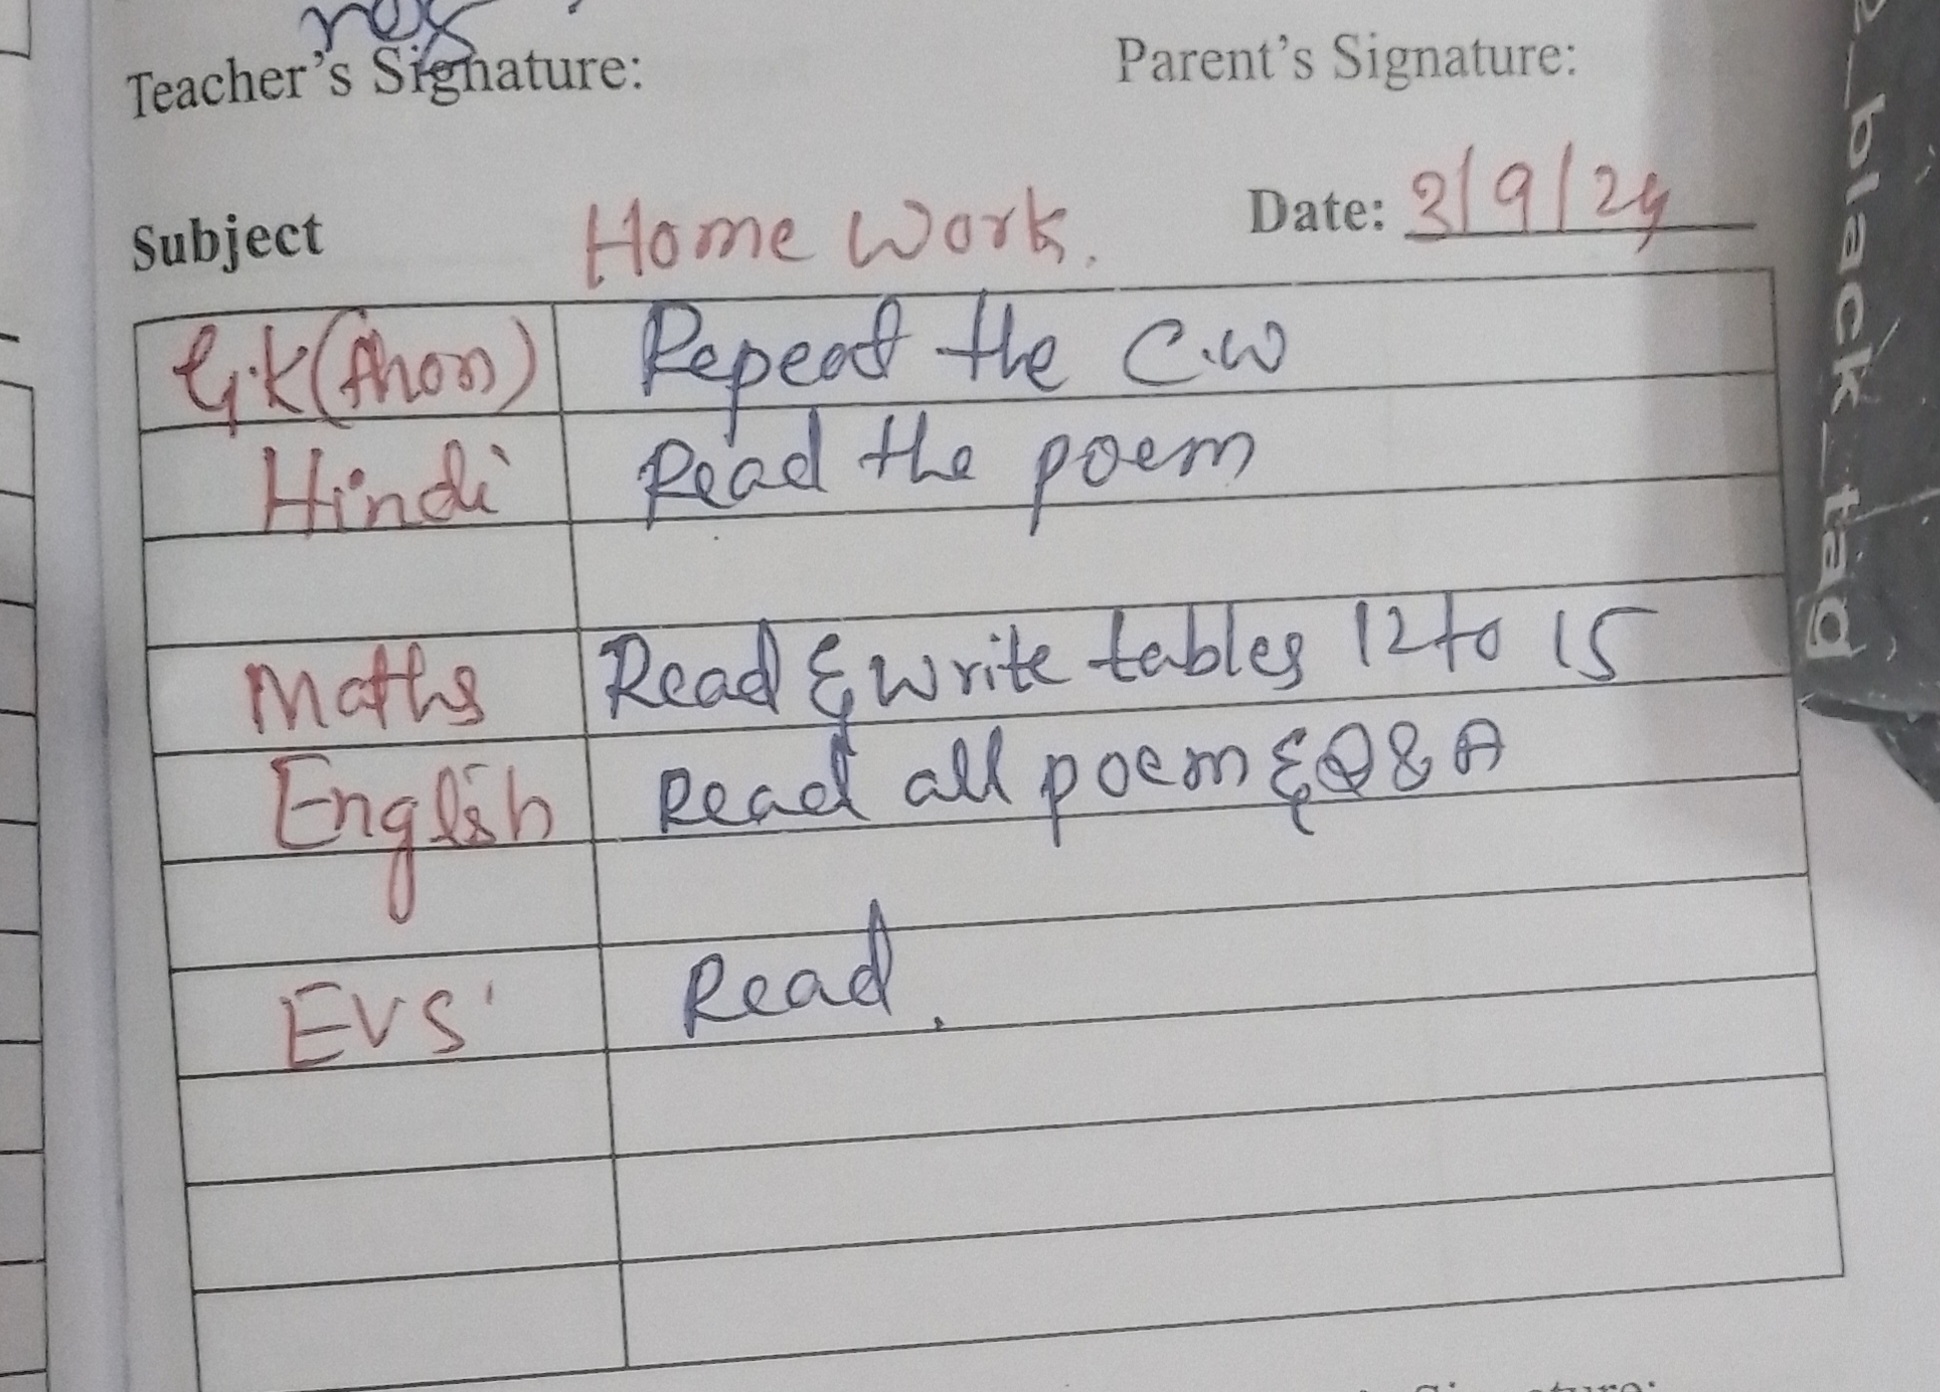 Teacher's Signature: Parent's Signature:
Subject Home Work. Date: 3/9/24
G.K(phon) Repeat the C.W
Hindi Read the poem
Maths Read & write tables 12 to 15
English Read all poem & Q & A
EVS Read.
black_tag